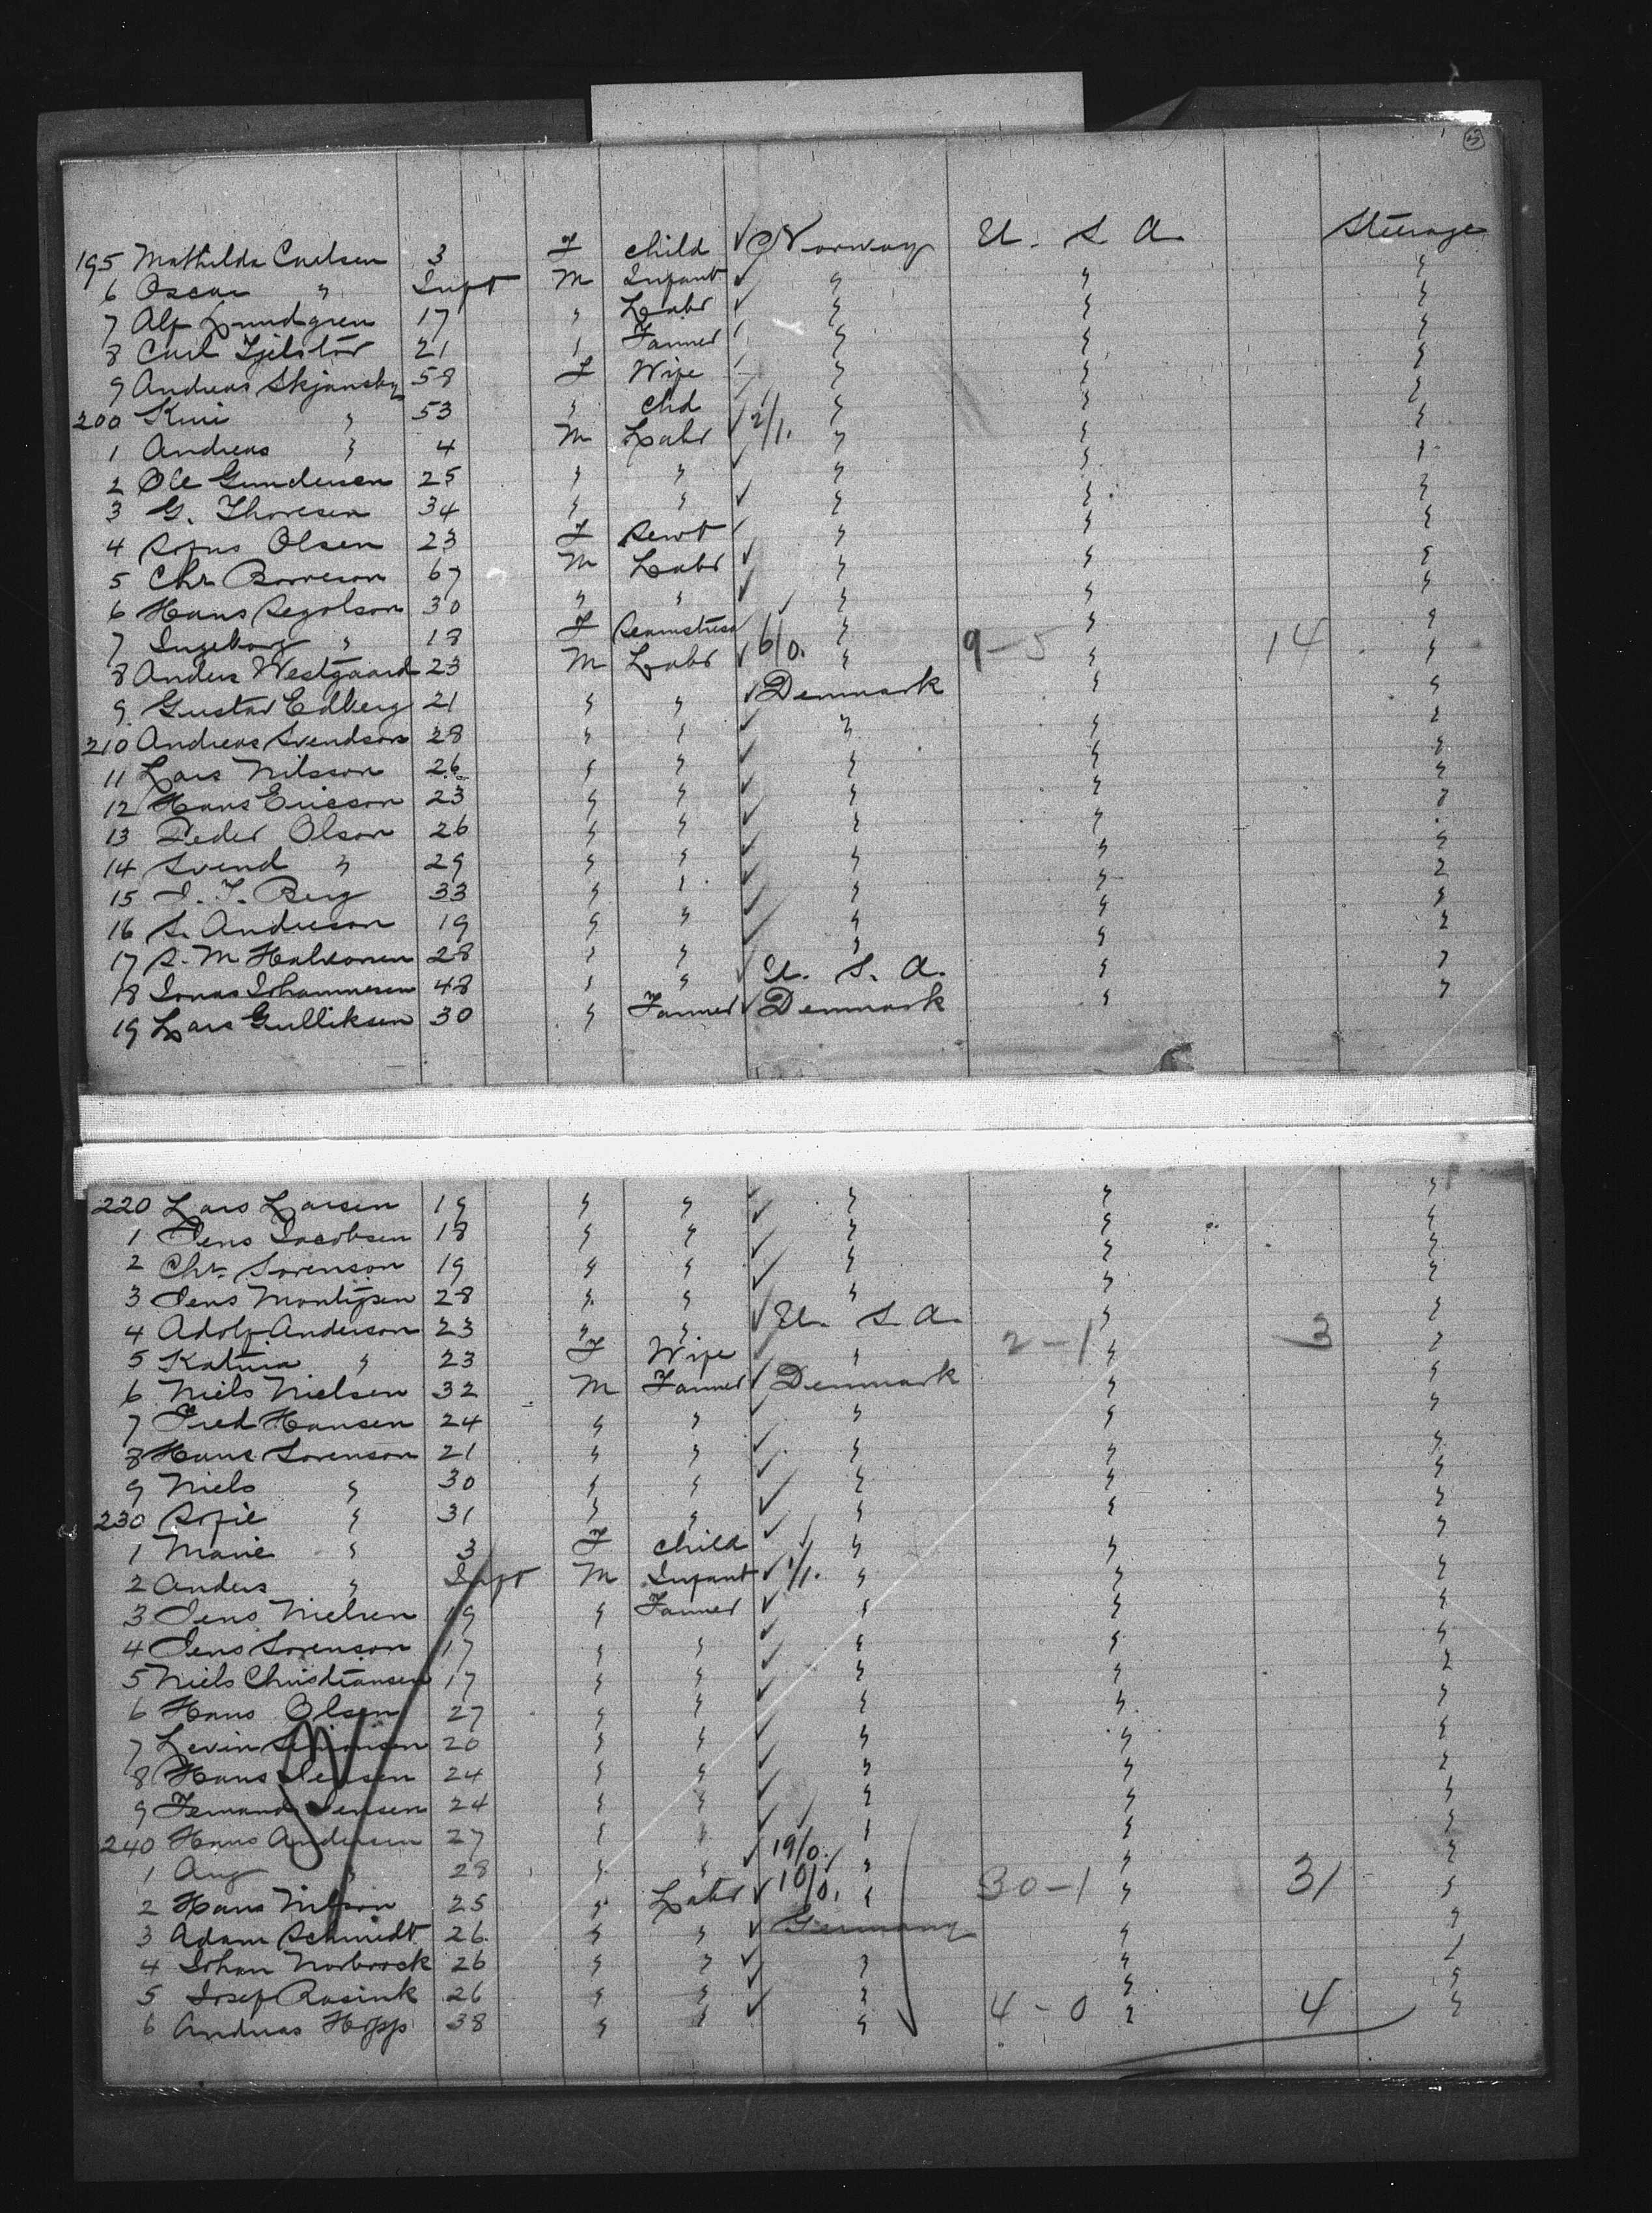 195 Mathilda Carlsen 3 F Child ✓ Norway U. S. A. Steerage
6 Oscar " Inft M Infant ✓ " " "
7 Alf Lundgren 17 " Labr ✓ " " "
8 Carl 21 " Farmer " " "
9 Andreas Skjansby 58 F Wife " " "
200 " 53 " Chd ✓ 2/1. " " "
1 Andreas " 4 M Labr ✓ " " "
2 Ole Gundersen 25 " " ✓ " " "
3 G. Thoresen 34 " " ✓ " " "
4 Sofus Olsen 23 F Servt ✓ " " "
5 Chr. Borreson 67 M Labr ✓ " " "
6 Hans Segolson 30 " " ✓ " " "
7 Ingeborg " 18 F Seamstress ✓ " " "
8 Anders Westgaard 23 M Labr ✓ 6/0. " 9-5 " 14 "
9 Gustav Edberg 21 " " ✓ Denmark " "
210 Andreas Svendson 28 " " ✓ " " "
11 Lars Nilsson 26 " " ✓ " " "
12 Hans Ericson 23 " " ✓ " " "
13 Peder Olson 26 " " ✓ " " "
14 Svend " 29 " " ✓ " " "
15 I. T. Berg 33 " " ✓ " " "
16 S. Anderson 19 " " ✓ " " "
17 S. M. Halvorsen 28 " " ✓ " " "
18 Jonas Johannesen 48 " " ✓ U. S. A. " "
19 Lars Gulliksen 30 " Farmer ✓ Denmark " "
220 Lars Larsen 19 " " ✓ " " "
1 Jens Jacobsen 18 " " ✓ " " "
2 Chr. Sorenson 19 " " ✓ " " "
3 Jens 28 " " ✓ " " "
4 Adolf Anderson 23 " " ✓ U. S. A. " "
5 Katrina " 23 F Wife ✓ " 2-1 " 3 "
6 Niels Nielsen 32 M Farmer ✓ Denmark " "
7 Fred Hansen 24 " " ✓ " " "
8 Hans Sorenson 21 " " ✓ " " "
9 Niels " 30 " " ✓ " " "
230 Sofie " 31 " " ✓ " " "
1 Marie " 3 F Child ✓ " " "
2 Anders " Inft M Infant ✓ 1/1. " " "
3 Jens Nielsen 19 " Farmer ✓ " " "
4 Jens Sorenson 17 " " ✓ " " "
5 Niels Christiansen 17 " " ✓ " " "
6 Hans Olsen 27 " " ✓ " " "
7 Levin Simonsen 20 " " ✓ " " "
8 Hans Jensen 24 " " ✓ " " "
9 Jensen 24 " " ✓ " " "
240 Hans Andersen 27 " " ✓ " " "
1 Aug " 28 " " ✓ 19/0. " " "
2 Hans Nilson 25 " Labr ✓ 10/0. " 30-1 " 31 "
3 Adam Schmidt 26 " " ✓ Germany " "
4 Johan Norbrock 26 " " ✓ " " "
5 Josef Rosink 26 " " ✓ " " "
6 Andreas Hopp 38 " " ✓ " 4-0 " 4 "